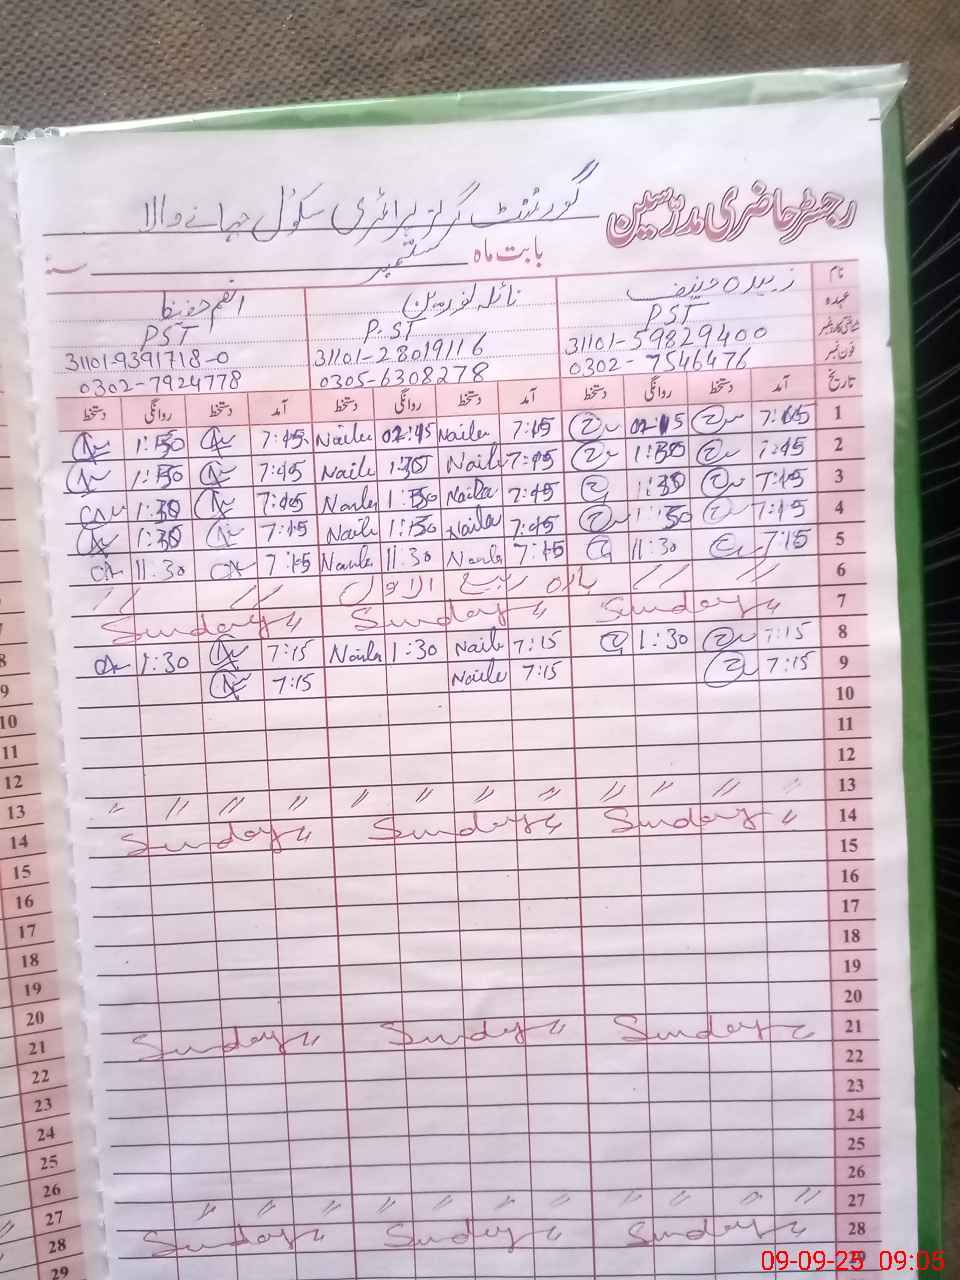 رجسٹر حاضری مدرسین گورنمنٹ گرلز پرائمری سکول
بابت ماہ ستمبر سنہ
نام زبیدہ حنیف نائلہ نورین انعم حفیظ
عہدہ PST P.ST PST
شناختی کارڈ نمبر 31101-59829400 31101-28019116 31101-9391718-0
فون نمبر 0302-7546476 0305-6308278 0302-7924778
تاریخ آمد دستخط روانگی دستخط آمد دستخط روانگی دستخط آمد دستخط روانگی دستخط
1 7:45 02:45 7:45 Naila 02:45 Naila 7:45 1:30
2 7:45 1:30 7:45 Naila 1:30 Naila 7:45 1:30
3 7:45 1:30 7:45 Naila 1:30 Naila 7:45 1:30
4 7:45 1:30 7:45 Naila 1:30 Naila 7:45 1:30
5 7:15 11:30 7:15 Naila 11:30 Naila 7:15 11:30
6 ربیع الاول
7 Sunday Sunday Sunday
8 7:15 1:30 7:15 Naila 1:30 Naila 7:15 1:30
9 7:15 7:15 Naila 7:15
10
11
12
13 〃 〃 〃 〃 〃 〃 〃 〃 〃 〃 〃 〃
14 Sunday Sunday Sunday
15
16
17
18
19
20
21 Sunday Sunday Sunday
22
23
24
25
26
27 〃 〃 〃 〃 〃 〃 〃 〃 〃 〃 〃 〃
28 Sunday Sunday Sunday
29
8
9
10
11
12
13
14
15
16
17
18
19
20
21
22
23
24
25
26
27
28
29
09-09-25 09:05